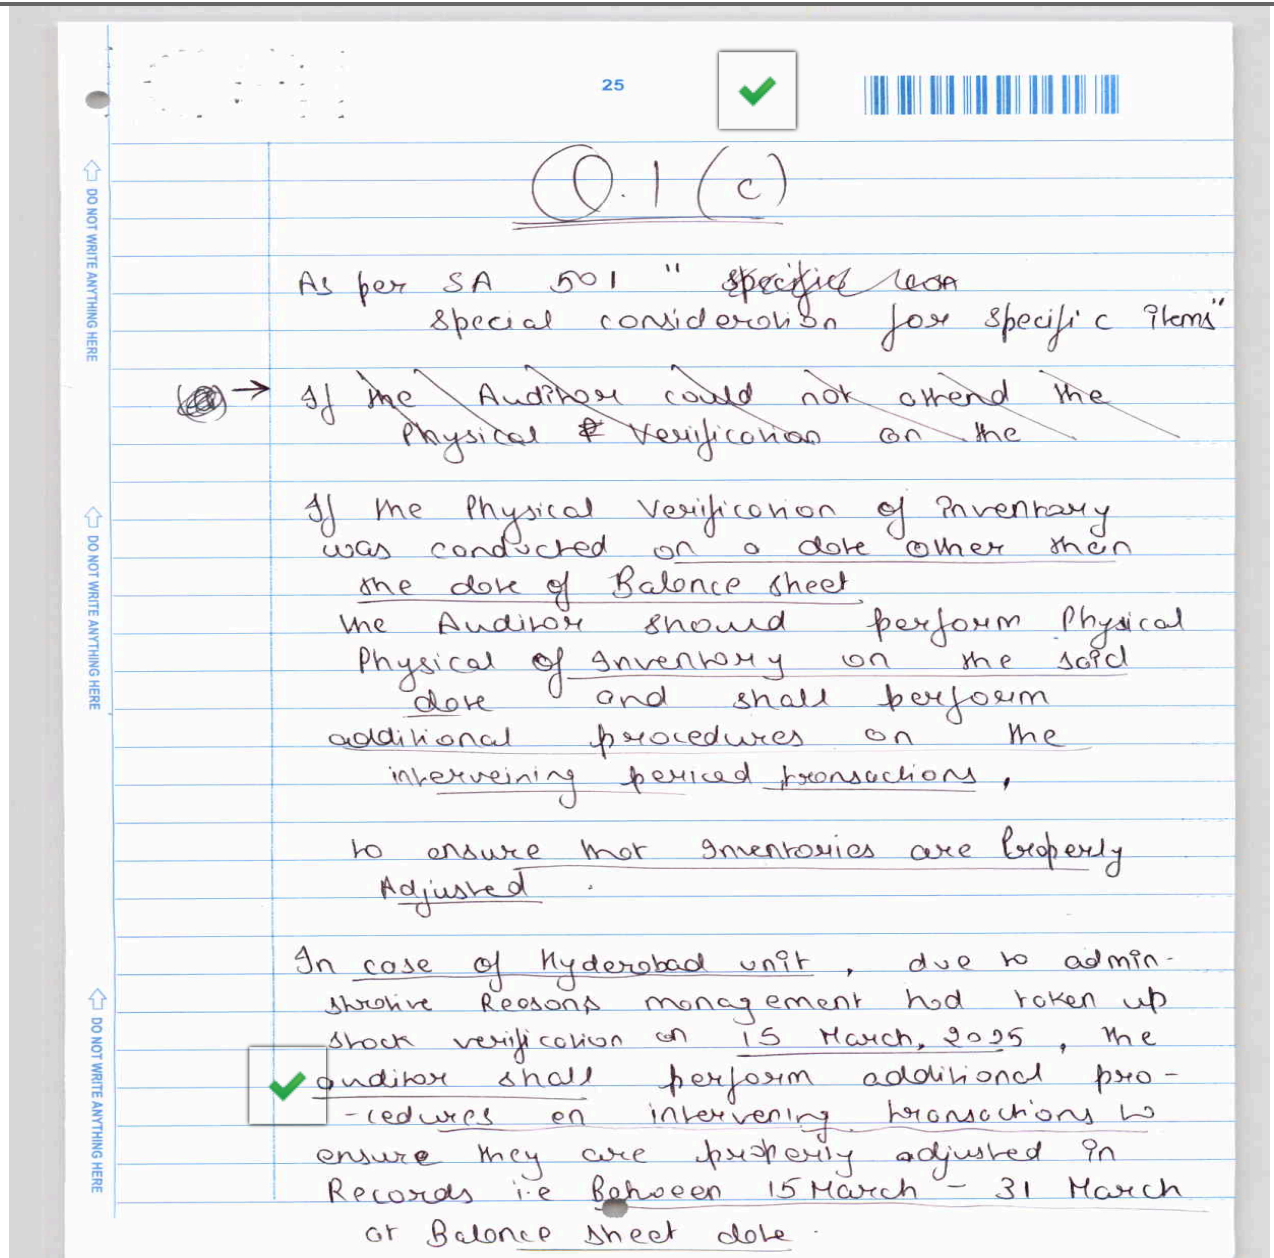 25
Q.1 (c)
As per SA 501 " specific
special consideration for specific items"
→ If the Auditor could not attend the
Physical & Verification on the
If the Physical Verification of Inventory
was conducted on a date other than
the date of Balance sheet
the Auditor should perform Physical
Physical of Inventory on the said
date and shall perform
additional procedures on the
interveining period transactions,
to ensure that Inventories are Properly
Adjusted.
In case of Hyderabad unit, due to admin-
strative Reasons management had taken up
stock verification on 15 March, 2025, the
auditor shall perform additional pro-
-cedures on intervening transactions to
ensure they are properly adjusted in
Records i.e Between 15 March - 31 March
or Balance sheet date.
DO NOT WRITE ANYTHING HERE
DO NOT WRITE ANYTHING HERE
DO NOT WRITE ANYTHING HERE